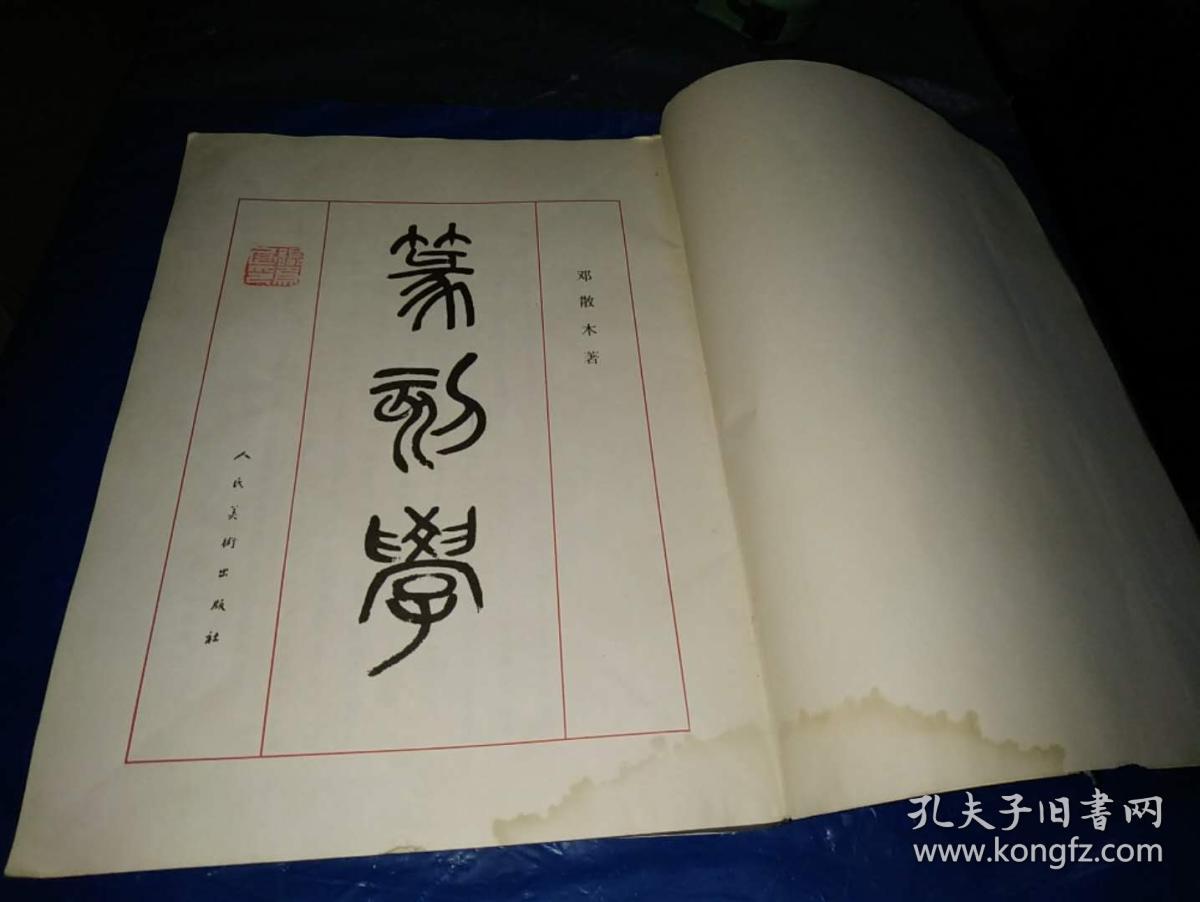 邓散木著
篆刻學
人民美術出版社
孔夫子旧书网
www.kongfz.com